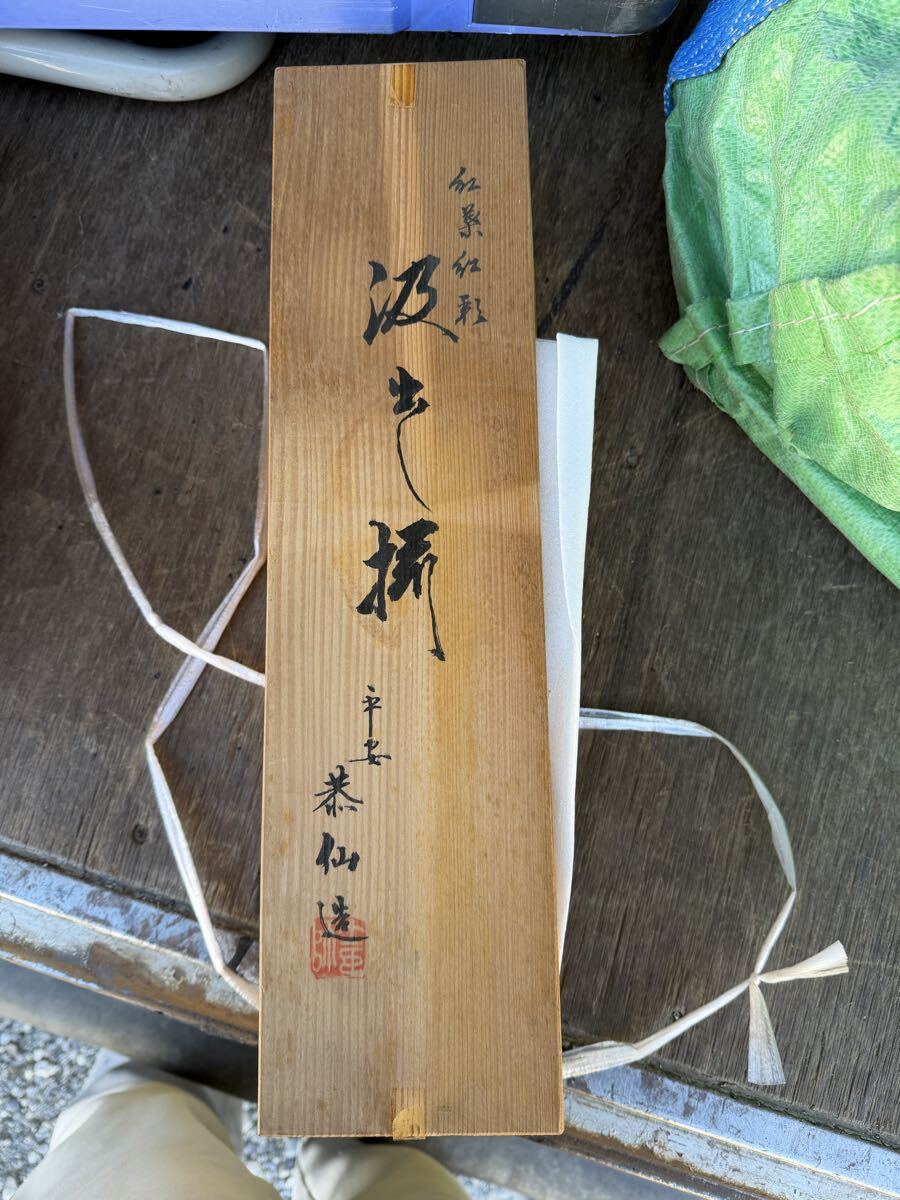 紅葉紅彩
汲出し揃
平安
恭仙造